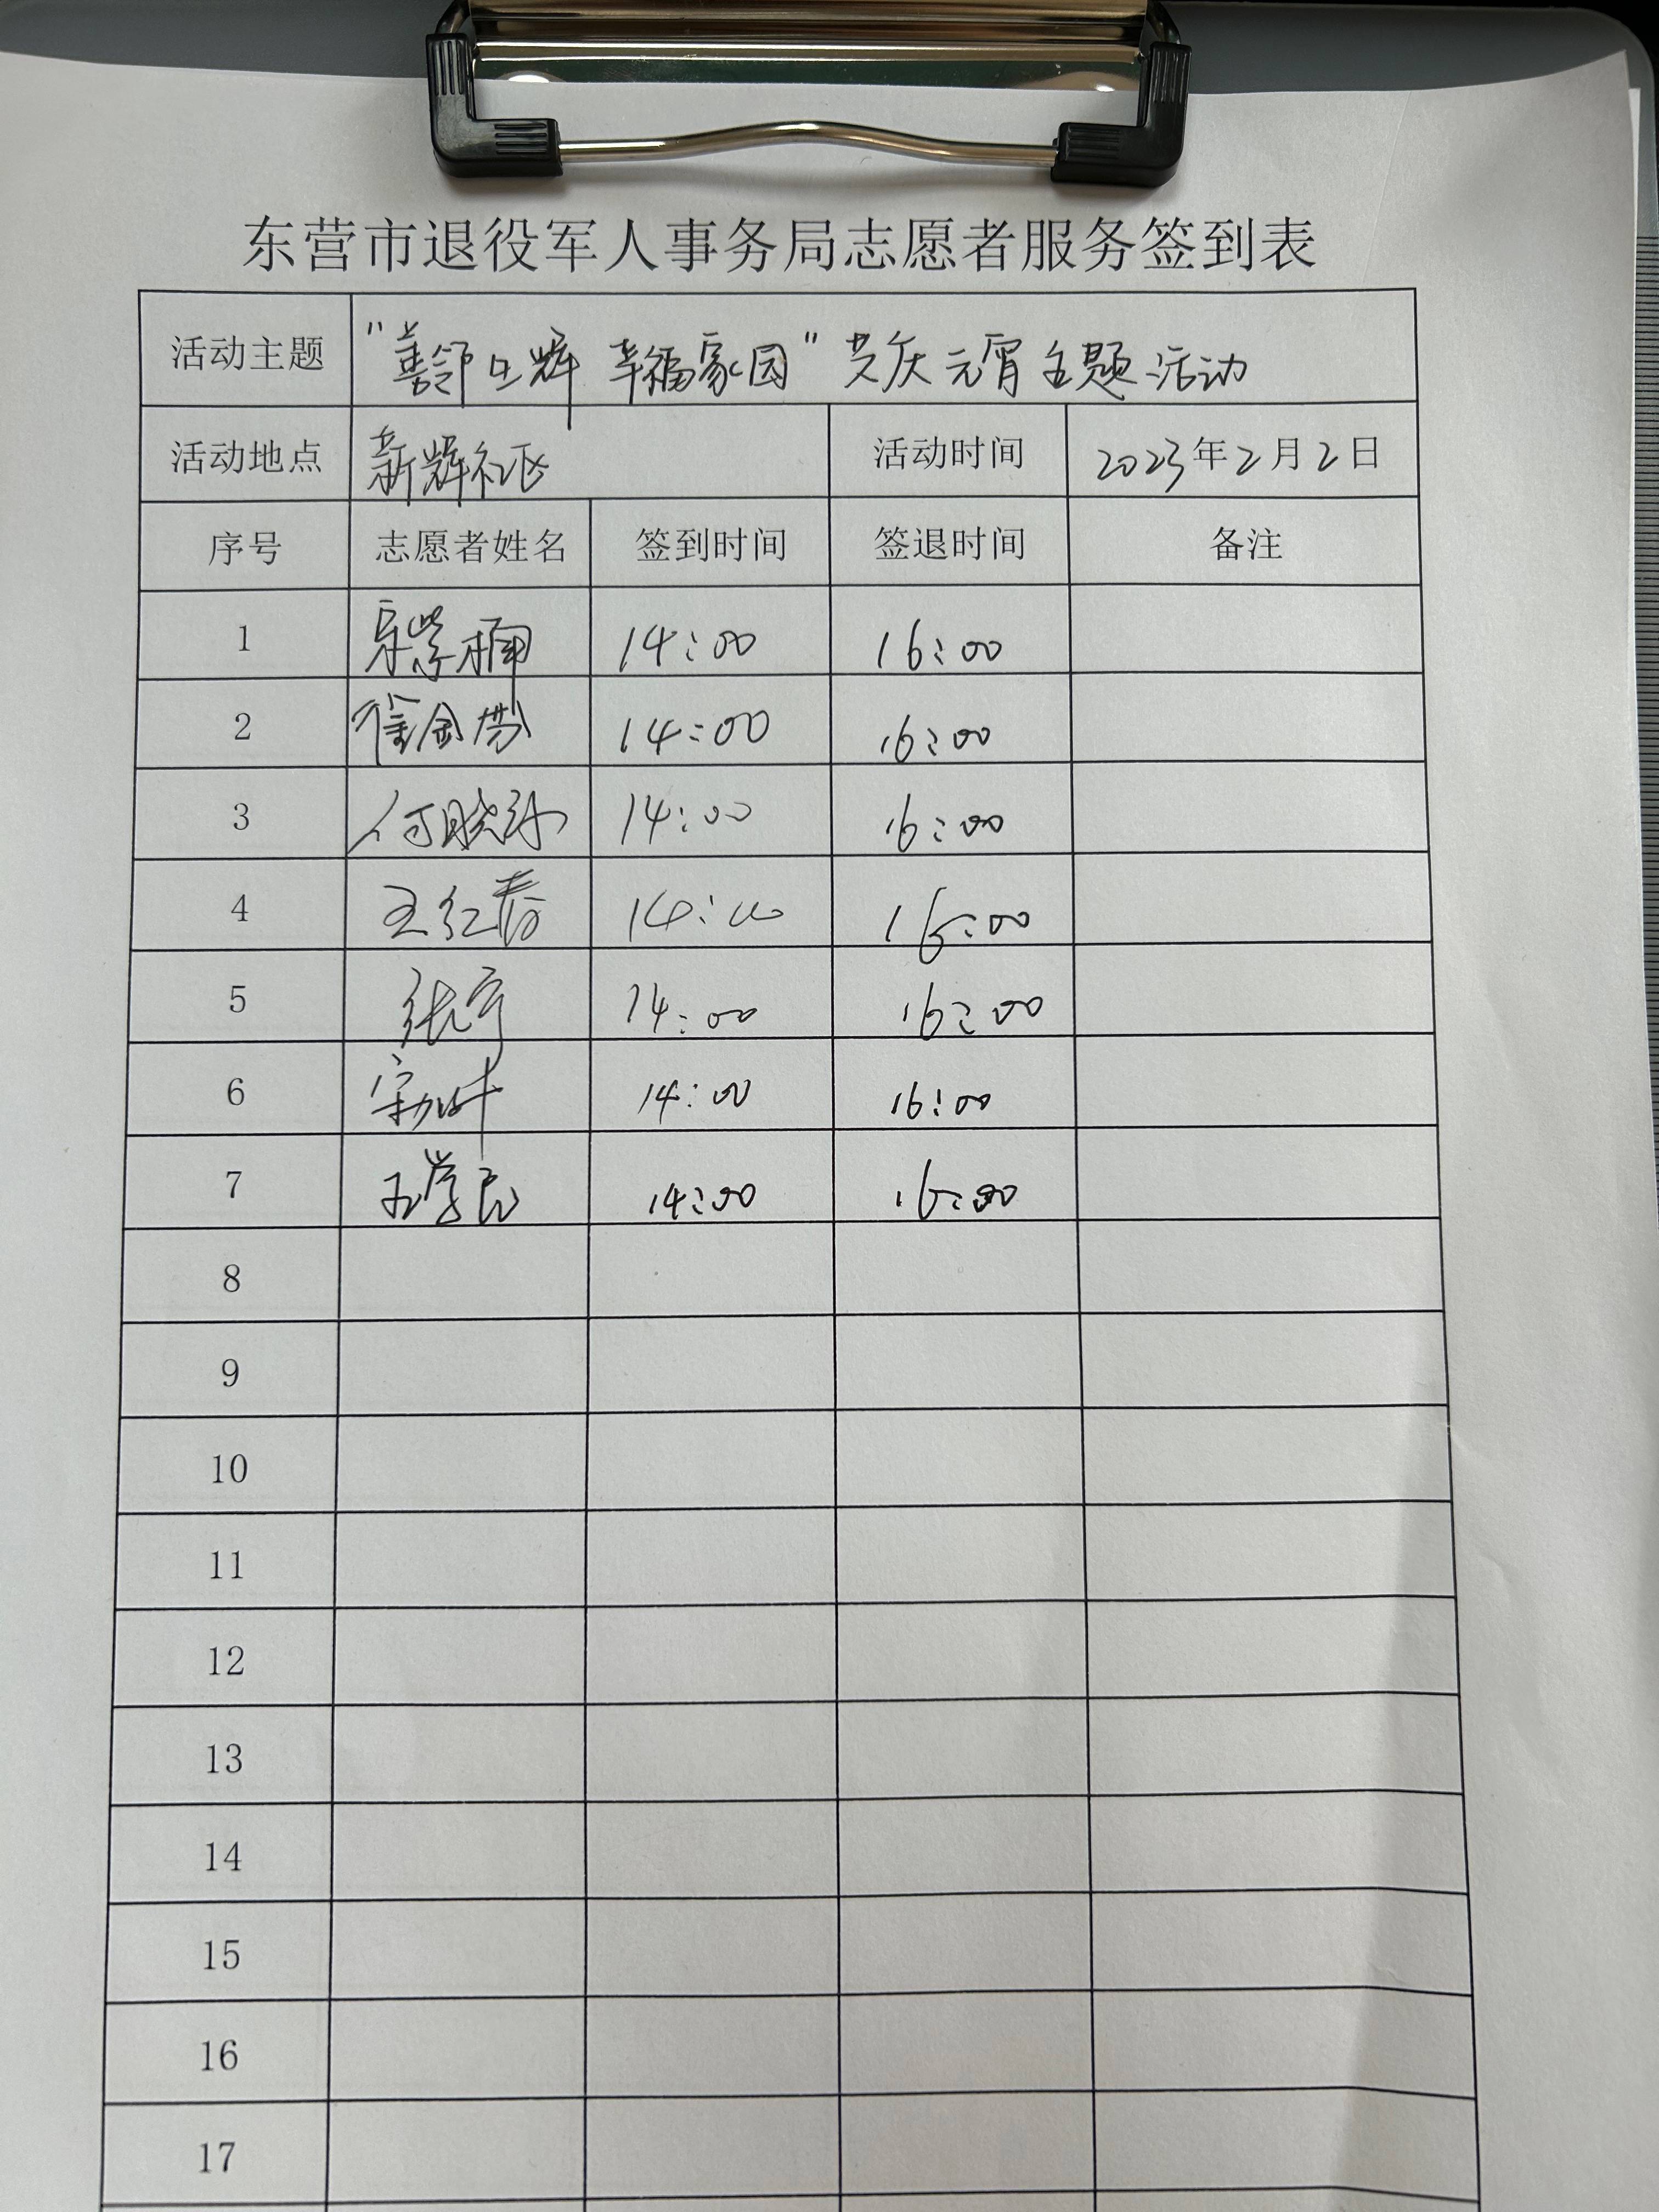 东营市退役军人事务局志愿者服务签到表
活动主题 "善邻 辉 幸福家园"共庆元宵主题活动
活动地点 新辉社区 活动时间 2023年2月2日
序号 志愿者姓名 签到时间 签退时间 备注
1 14:00 16:00
2 徐金 14:00 16:00
3 何晓 14:00 16:00
4 王红春 14:00 16:00
5 张宇 14:00 16:00
6 宋 14:00 16:00
7 王学民 14:00 16:00
8
9
10
11
12
13
14
15
16
17